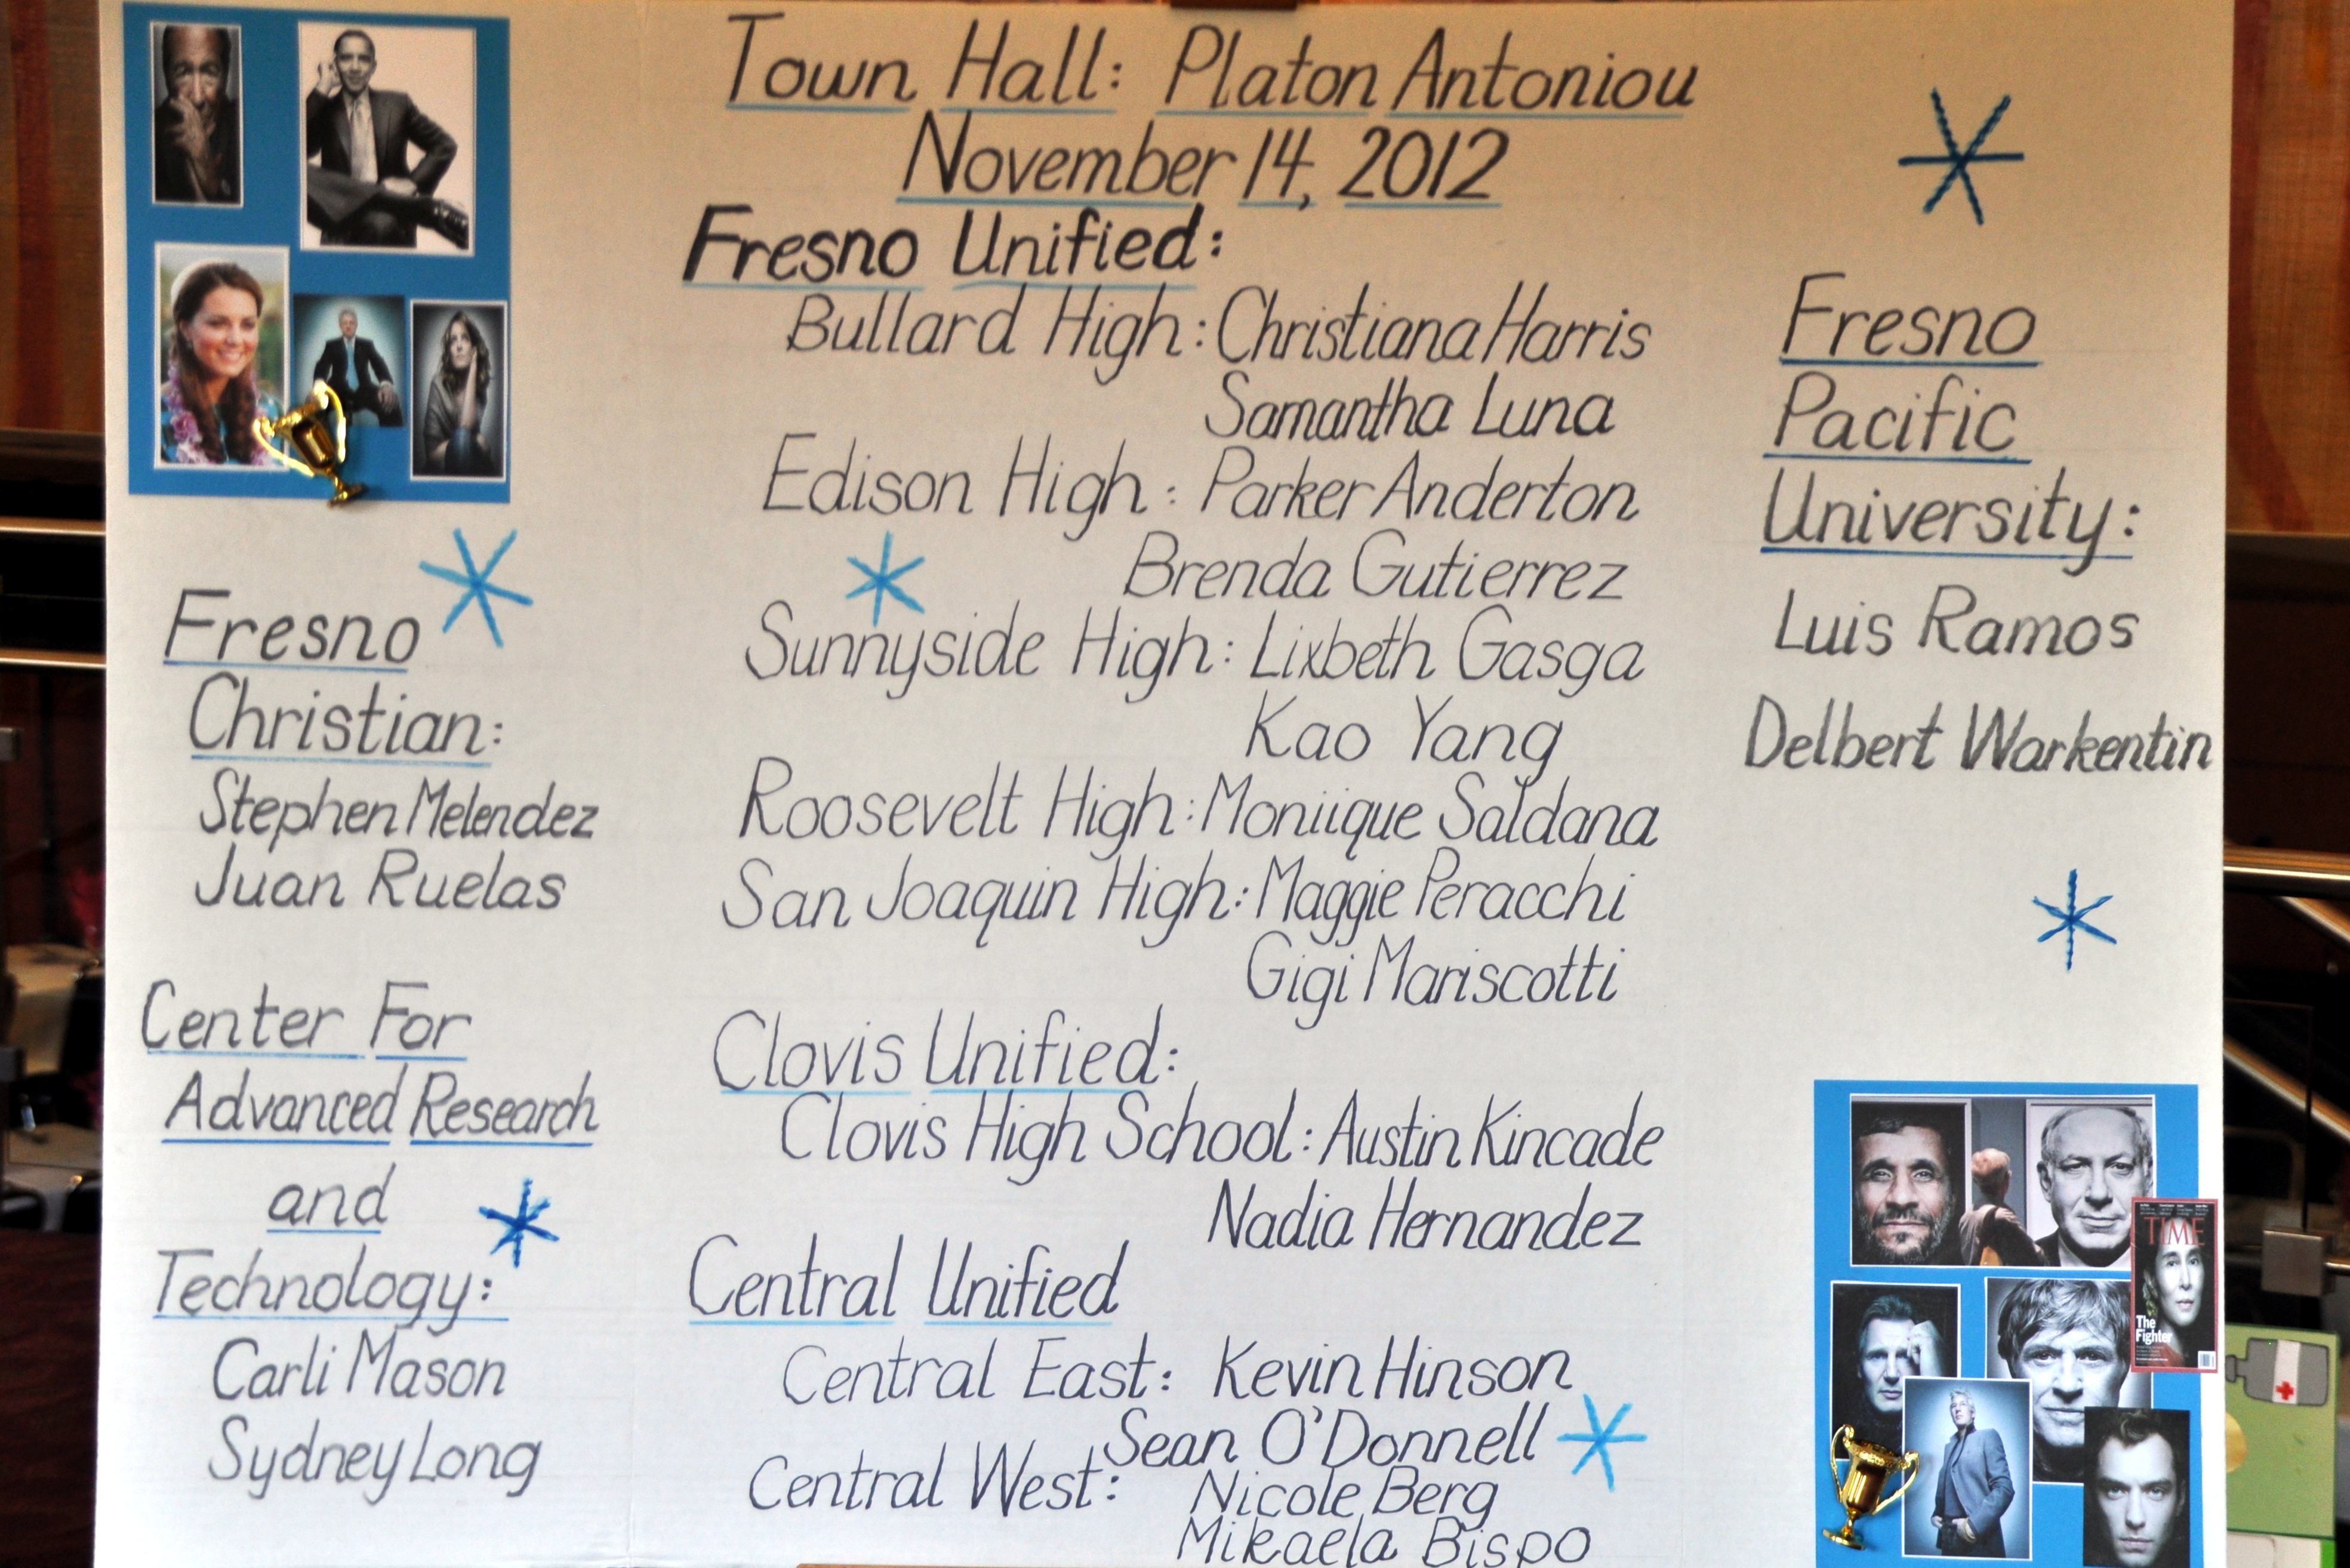 Town Hall: Platon Antoniou
November 14, 2012
Fresno Unified:
Bullard High: Christiana Harris
Samantha Luna
Edison High: Parker Anderton
Brenda Gutierrez
Sunnyside High: Lixbeth Gasga
Kao Yang
Roosevelt High: Moniique Saldana
San Joaquin High: Maggie Peracchi
Gigi Mariscotti
Clovis Unified:
Clovis High School: Austin Kincade
Nadia Hernandez
Central Unified
Central East: Kevin Hinson
Sean O'Donnell
Central West: Nicole Berg
Mikaela Bispo
Fresno
Christian:
Stephen Melendez
Juan Ruelas
Center For
Advanced Research
and
Technology:
Carli Mason
Sydney Long
Fresno
Pacific
University:
Luis Ramos
Delbert Warkentin
TIME
The
Fighter